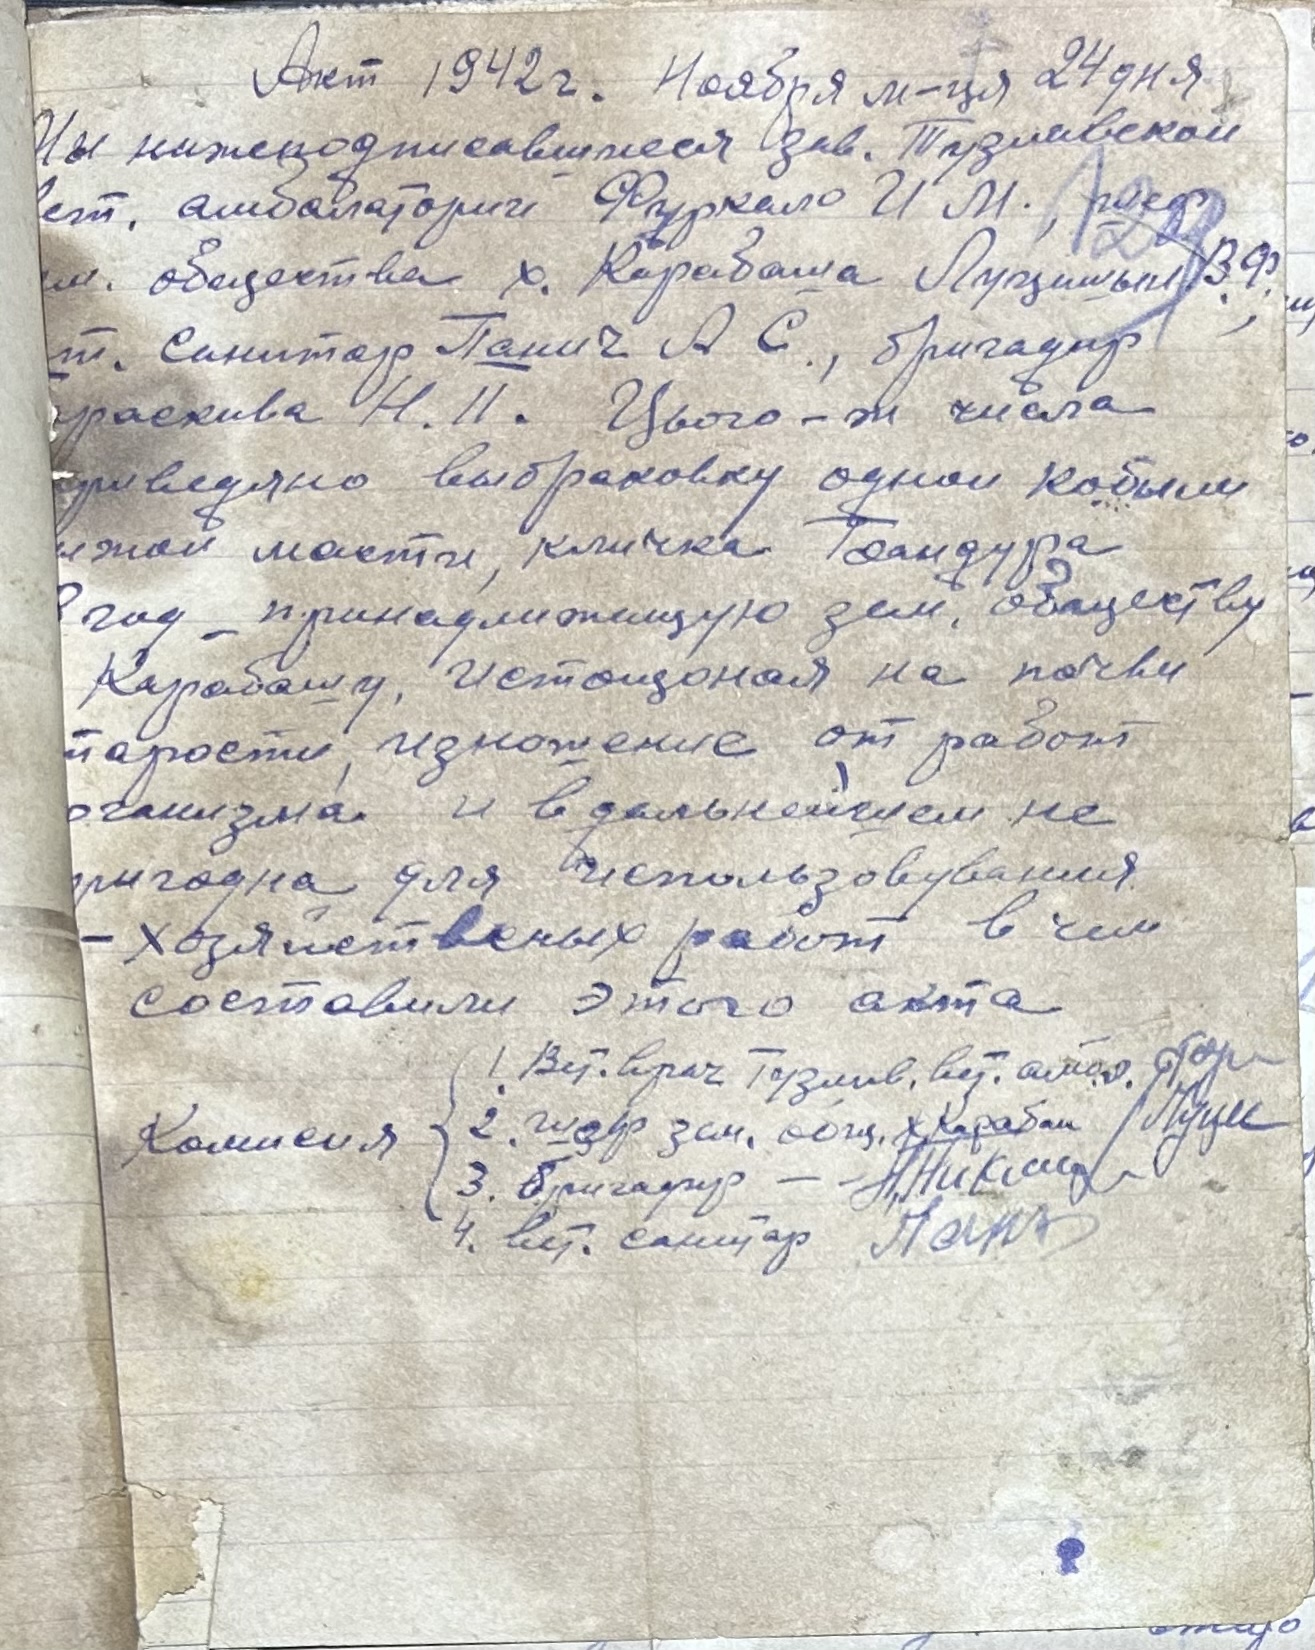 Акт 1942 г. Ноября м-ця 24 дня
Мы нижеподписавшиеся зав. Тузлавской
вет. амбалаторий Фуркало И М.,
123
общества х. Карабаша Луцишын В.Ф.,
т. санитар Панич А С., бригадир
Н. П. Цього-ж числа
приведяно выбраковку одной кобыли
жой масти, кличка Бандура
год - принадлижищую зем. обществу
Карабашу, истощоная на почви
тарости, изношение от работ
рганизма и в дальнейшем не
ригодна для использовування
- хозяйственых работ в чем
составили этого акта
1. Вт. врач Тузлав. вт. амб.
Комисия 2. зем. общ. х Карабаш Луци
3. Бригадир - -
4. вт. санитар Панич